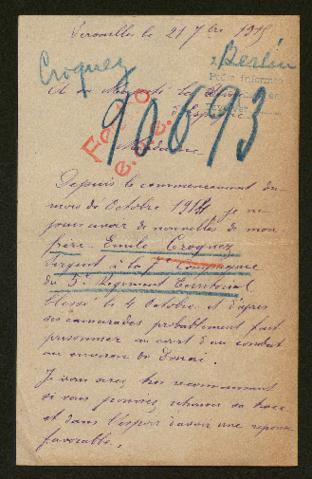 Versailles le 21 7bre 1915
Croquez
Berlin
Prière informer
90693
Madame
Depuis le commencement du
mois de Octobre 1914 je ne
puis avoir de nouvelles de mon
frère Emile Croquez
Sergent à la 7e Compagnie
du 5e Régiment Territorial
Blessé le 4 Octobre et d'après
ses camarades probablement fait
prisonnier au cours d'un combat
au environ de Douai.
Je vous serez très reconnaissant
si vous pouvez, retrouver sa trace
et dans l'espoir d'avoir une réponse
favorable.